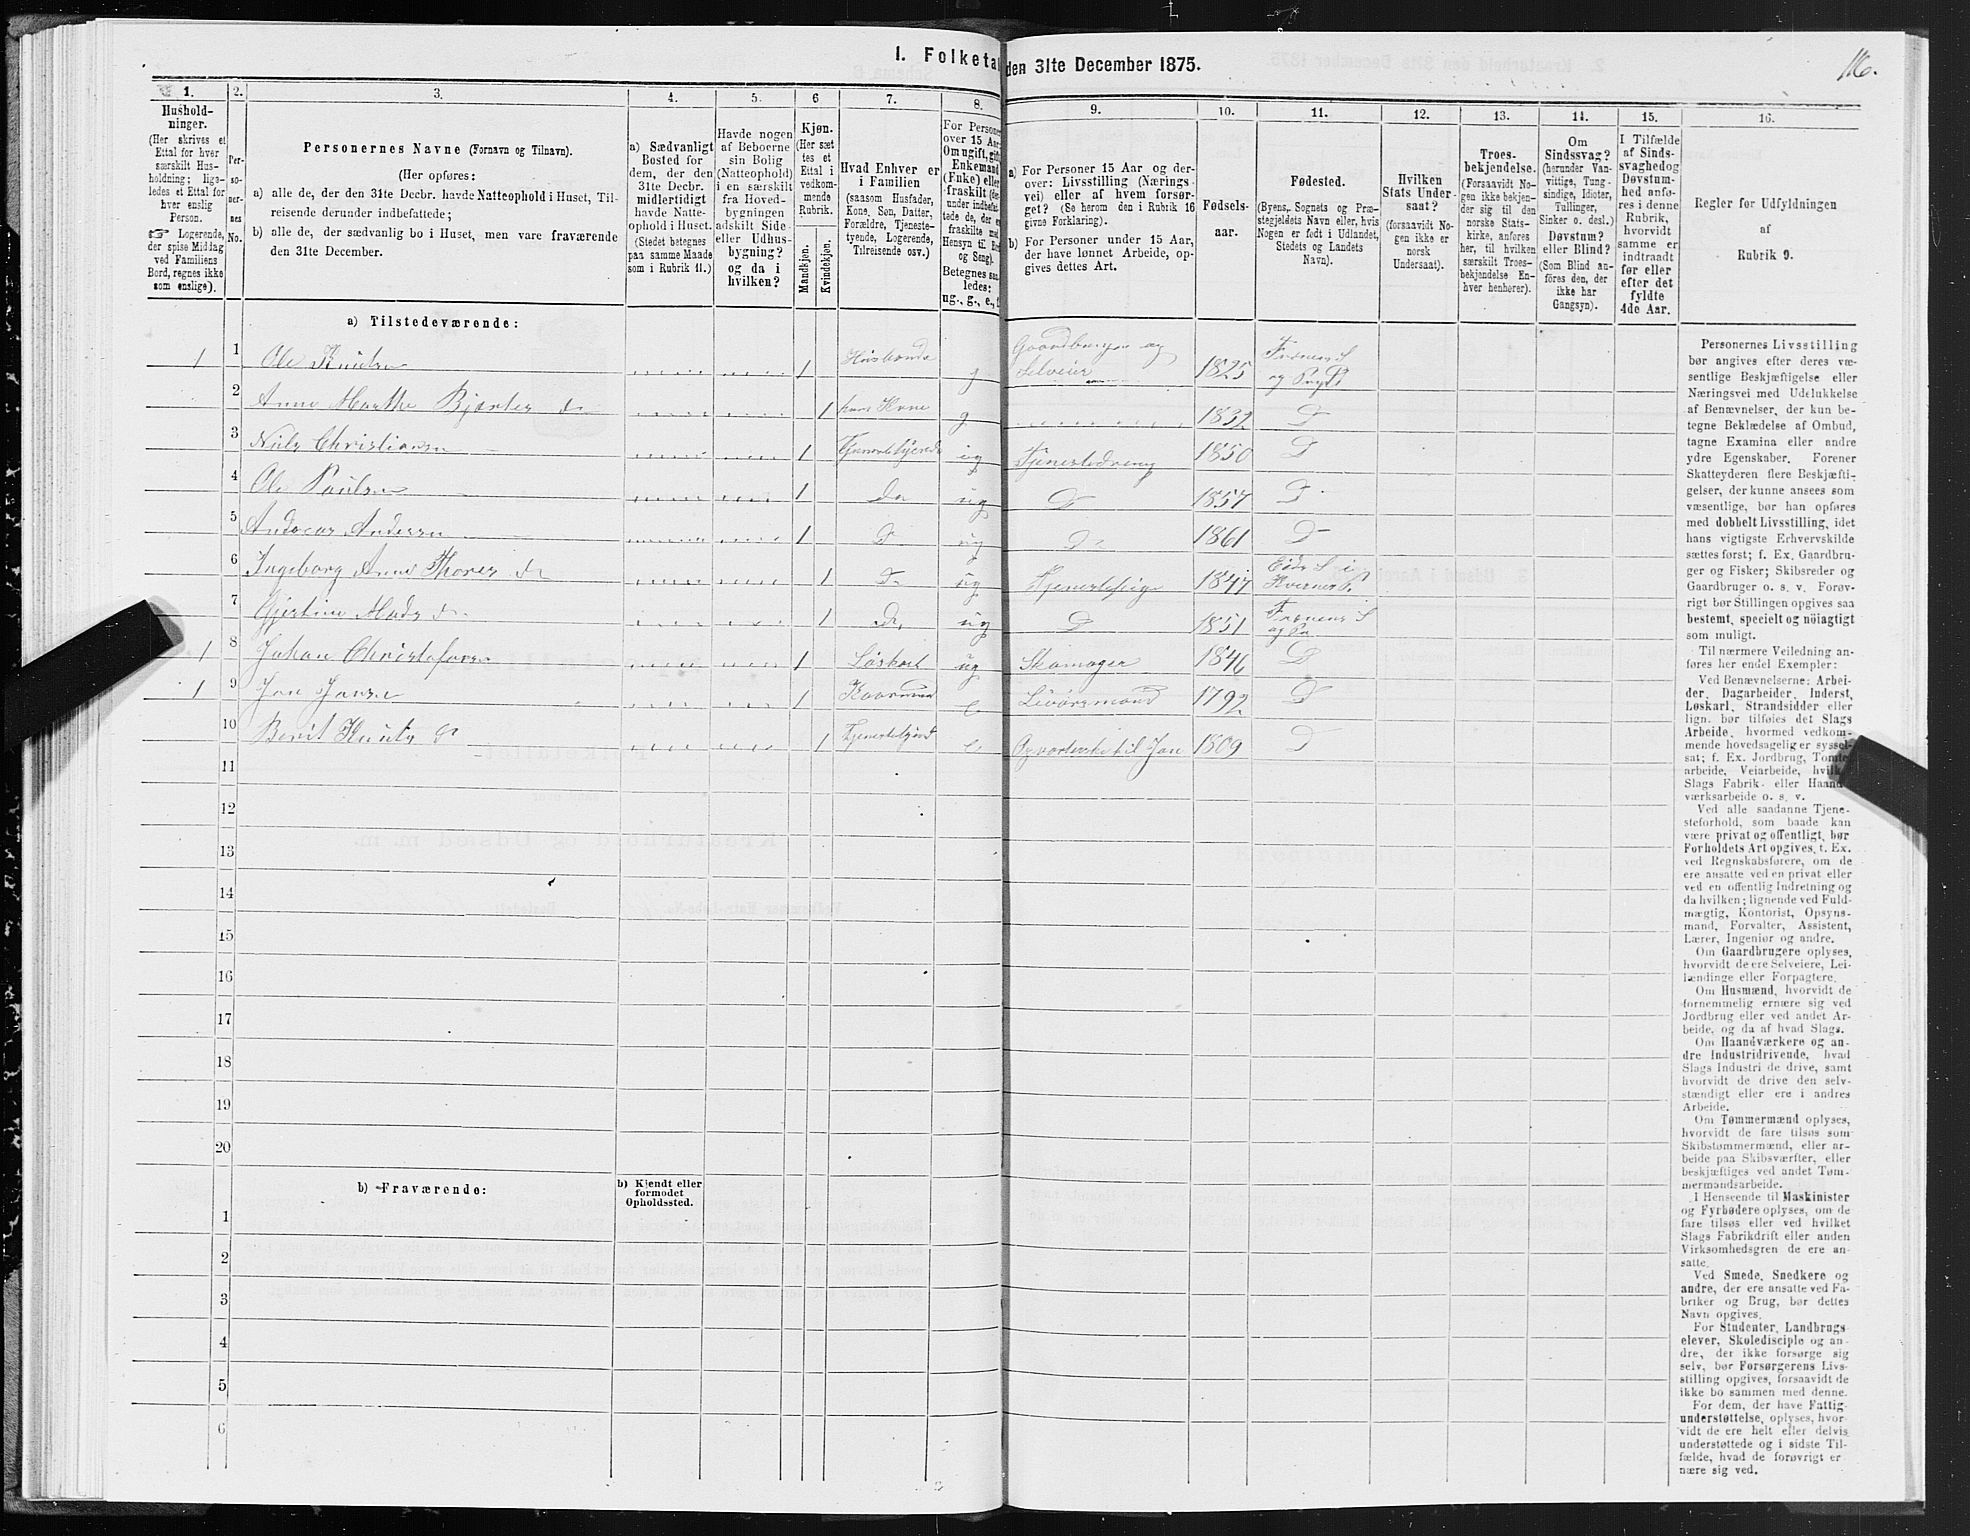 I. Folketal den 31te December 1875.
116.
1.
2.
3.
4.
5.
6
7.
8.
9.
10.
11.
12.
13.
14.
15.
16.
Hushold-
ninger.
(Her skrives et
Ettal for hver
særskilt Hus-
holdning; liga-
ledes et Ettal for
hver enslig
Person.
☞ Logerende,
der spise Middag
ved Familiens
Bord, regnes ikke
som enslige).
Per-
so-
ner-
nes
No.
Personernes Navne (Fornavn og Tilnavn).
(Her opføres:
a) alle de, der den 31te Decbr. havde Natteophold i Huset, Til-
reisende derunder indbefattede;
b) alle de, der sædvanlig bo i Huset, men vare fraværende
den 31te December.
a) Sædvanligt
Bosted for
dem, der den
31te Decbr.
midlertidigt
havde Natte-
ophold i Huset.
(Stedet betegnes
paa samme Maade
som i Rubrik 11.)
Havde nogen
af Beboerne
sin Bolig
(Natteophold)
i en særskilt
fra Hoved-
bygningen
adskilt Side-
eller Udhus-
bygning?
og da i
hvilken?
Kjøn.
(Her sæt
tes et
Ettal i
vedkom-
mende
Rubrik.
Mandkjøn.
Kvindekjøn.
Hvad Enhver er
i Familien
(saasom Husfader,
Kone, Søn, Datter,
Forældre, Tjeneste-
tyende, Logerende,
Tilreisende osv.)
For Personer
over 15 Aar:
Om ugift, gift,
Enkemand
(Enke) eller
fraskilt
Betegnes saa-
ledes:
ug., g., e.,
a) For Personer 15 Aar og der-
over: Livsstilling (Nærings-
vei) eller af hvem forsør-
get? (Se herom den i Rubrik 16
givne Forklaring).
b) For Personer under 15 Aar,
der have lønnet Arbeide, op-
gives dettes Art.
Fødsels-
aar.
Fødested.
(Byens, Sognets og Præ-
stegjeldets Navn eller, hvis
Nogen er født i Udlandet,
Stedets og Landets
Navn).
Hvilken
Stats Under-
saat?
(forsaavidt No-
gen ikke er
norsk
Undersaat).
Troes-
bekjendelse.
(Forsaavidt No-
gen ikke bekjen-
der sig til den
norske Stats-
kirke, anføres
her, til hvilken
særskilt Troes-
bekjendelse En-
hver henhører).
Om
Sindssvag?
(herunder Van-
vittige, Tung-
sindige, Idioter,
Tullinger,
Sinker o. desl.)
Døvstum?
eller Blind?
(Som Blind an-
føres den, der
ikke har
Gangsyn).
I Tilfælde
af Sinds-
svaghed og
Døvstum-
hed anfø-
res i denne
Rubrik,
hvorvidt
samme er
indtraadt
før eller
efter det
fyldte
4de Aar.
Regler for Udfyldningen
af
Rubrik 9.
a) Tilstedeværende:
1 1 Ole Knuts 1 Husbonde g Gaardbruger og Selveier 1825
2 Anne Marthe 1 hans Kone g 1832 D
3 Niels Christians 1 ug Tjenestedreng 1850 D
4 Ole Pauls 1 do ug D 1857 D
5 Anders 1 D ug D 1861 D
6 Ingeborg Anne 1 D ug Tjenestepige 1847
7 Mads 1 D ug D 1851
1 8 Johan Christofers 1 Løskarl ug Skomager 1846 D
1 9 Jon Jons 1 e 1792 D
10 Berit Knuts 1 e til Jon 1809 D
11
12
13
14
15
16
17
18
19
20
b) Fraværende:
b) Kjendt eller
formodet
Opholdssted.
1
2
3
4
5
6
Personernes Livsstilling
bør angives efter deres væ-
sentlige Beskjæftigelse eller
Næringsvei med Udelukkelse
af Benævnelser, der kun be-
tegne Beklædelse af Ombud,
tagne Examina eller andre
ydre Egenskaber. Forener
Skatteyderen flere Beskjæfti-
gelser, der kunne ansees som
væsentlige, bør han opføres
med dobbelt Livsstilling, idet
hans vigtigste Erhvervskilde
sættes først; f. Ex. Gaardbru-
ger og Fisker; Skibsreder og
Gaardbruger o. s. v. Forøv-
rigt bør Stillingen opgives saa
bestemt, specielt og nøiagtigt
som muligt.
Til nærmere Veiledning an-
føres her endel Exempler:
Ved Benævnelserne: Arbei-
der, Dagarbeider, Inderst,
Løskarl, Strandsidder eller
lign. bør tilføies det Slags
Arbeide, hvormed vedkom-
mende hovedsagelig er syssel-
sat; f. Ex. Jordbrug, Tomte-
arbeide, Veiarbeide, hvilket
Slags Fabrik- eller Haand-
værksarbeide o. s. v.
Ved alle saadanne Tjene-
steforhold, som baade kan
være privat og offentligt, bør
Forholdets Art opgives, t. Ex.
ved Regnskabsførere, om de
ere ansatte ved en privat eller
ved en offentlig Indretning og
da hvilken; lignende ved Fuld-
mægtig, Kontorist, Opsyns-
mand, Forvalter, Assistent,
Lærer, Ingeniør og andre.
Om Gaardbrugere oplyses,
hvorvidt de ere Selveiere, Lei-
lændinge eller Forpagtere.
Om Husmænd, hvorvidt de
fornemmelig ernære sig ved
Jordbrug eller ved andet Ar-
beide, og da af hvad Slags.
Om Haandværkere og an-
dre Industridrivende, hvad
Slags Industri de drive, samt
hvorvidt de drive den selv-
stændigt eller ere i andres
Arbeide.
Om Tømmermænd oplyses,
hvorvidt de fare tilsøs som
Skibstømmermænd, eller ar-
beide paa Skibsværfter, eller
beskjæftiges ved andet Tøm-
mermandsarbeide.
I Henseende til Maskinister
og Fyrbødere oplyses, om de
fare tilsøs eller ved hvilket
Slags Fabrikdrift eller anden
Virksomhedsgren de ere an-
satte.
Ved Smede, Snedkere og
andre, der ere ansatte ved Fa-
briker og Brug, bør dettes
Navn opgives.
For Studenter, Landbrugs
elever, Skoledisciple og an-
dre, der ikke forsørge sig
selv, bør Forsørgerens Livs-
stilling opgives, forsaavidt de
ikke bo sammen med denne.
For dem, der have Fattig-
understøttelse, oplyses, hvor-
vidt de ere helt eller delvis
understøttede og i sidste Til-
fælde, hvad de forøvrigt er-
nære sig ved.